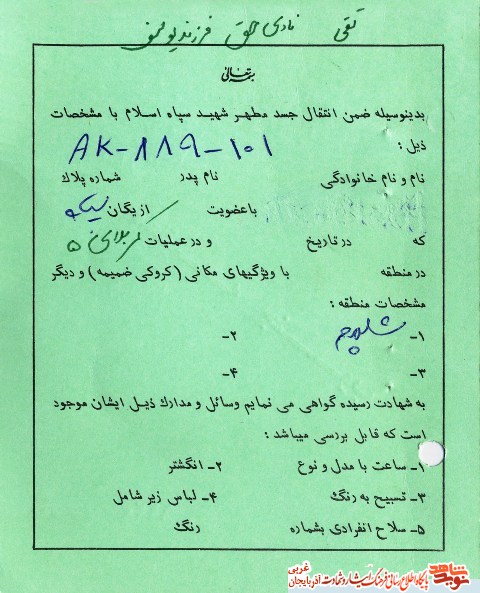 تقی نادی حق فرزند یوسف
بسمه تعالی
بدینوسیله ضمن انتقال جسد مطهر شهید سپاه اسلام با مشخصات
ذیل :
AK-۸۸۹-۱۰۱
نام و نام خانوادگی نام پدر شماره پلاك
با عضویت از یگان سپاه
که در تاریخ و در عملیات کربلای ۵
در منطقه با ویژگیهای مکانی (کروکی ضمیمه) و دیگر
مشخصات منطقه :
۱- شلمچه ۲-
۳- ۴-
به شهادت رسیده گواهی می نمایم وسائل و مدارك ذیل ایشان موجود
است که قابل بررسی میباشد :
۱- ساعت با مدل و نوع ۲- انگشتر
۳- تسبیح به رنگ ۴- لباس زیر شامل
۵- سلاح انفرادی بشماره رنگ
نوید شاهد پایگاه اطلاع رسانی فرهنگ ایثار و شهادت آذربایجان غربی